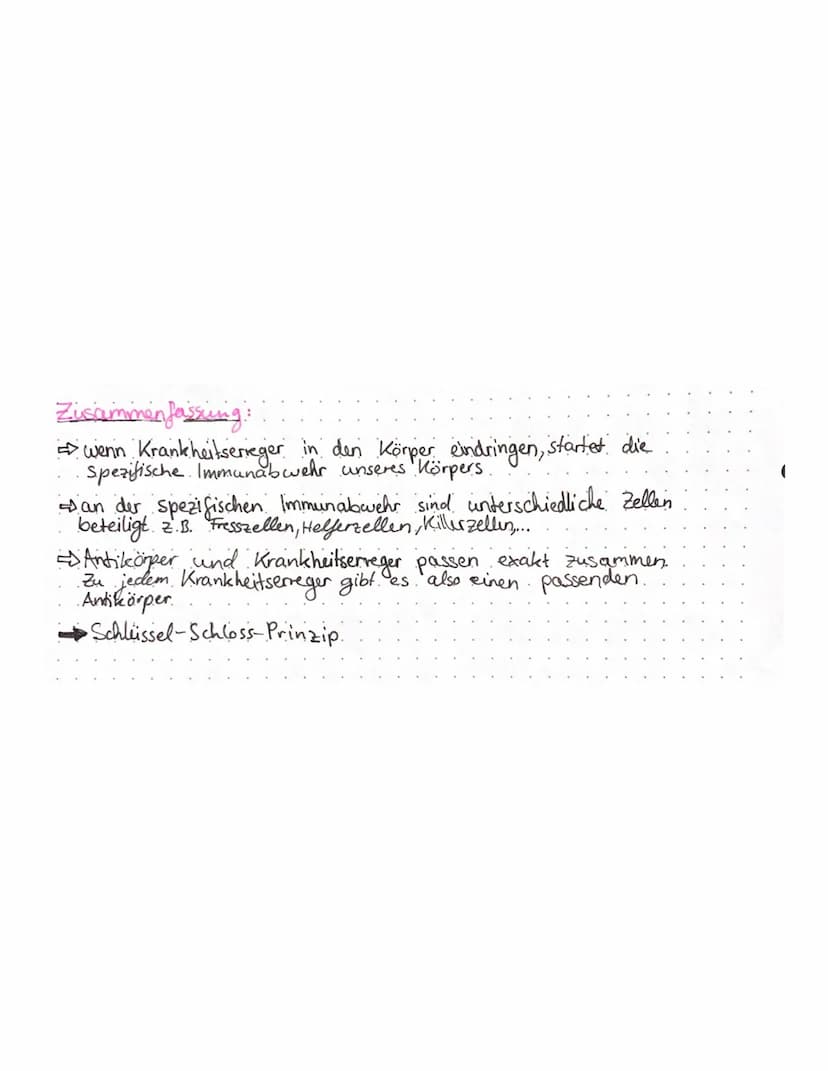 Zusammenfassung:
⇨ wenn Krankheitserreger in den Körper eindringen, startet die
spezifische Immunabwehr unseres Körpers.
⇨ an der spezifischen Immunabwehr sind unterschiedliche Zellen
beteiligt z.B. Fresszellen, Helferzellen, Killerzellen,...
⇨ Antikörper und Krankheitserreger passen exakt zusammen.
Zu jedem Krankheitserreger gibt es also einen passenden
Antikörper.
➡ Schlüssel-Schloss-Prinzip.